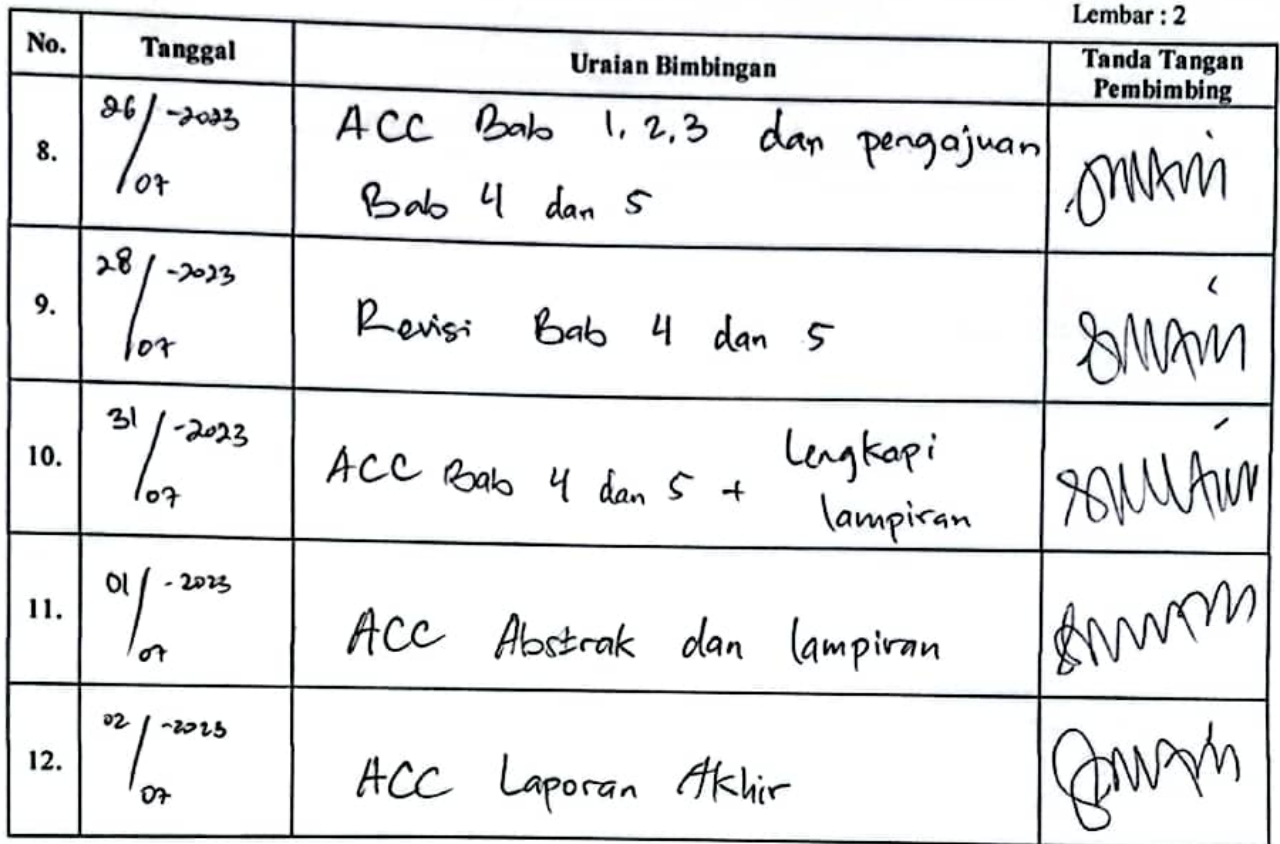 Lembar : 2
No. Tanggal Uraian Bimbingan Tanda Tangan
Pembimbing
8. 26/07-2023 ACC Bab 1, 2, 3 dan pengajuan
Bab 4 dan 5
9. 28/07-2023 Revisi Bab 4 dan 5
10. 31/07-2023 ACC Bab 4 dan 5 + Lengkapi
lampiran
11. 01/07-2023 ACC Abstrak dan lampiran
12. 02/07-2023 ACC Laporan Akhir